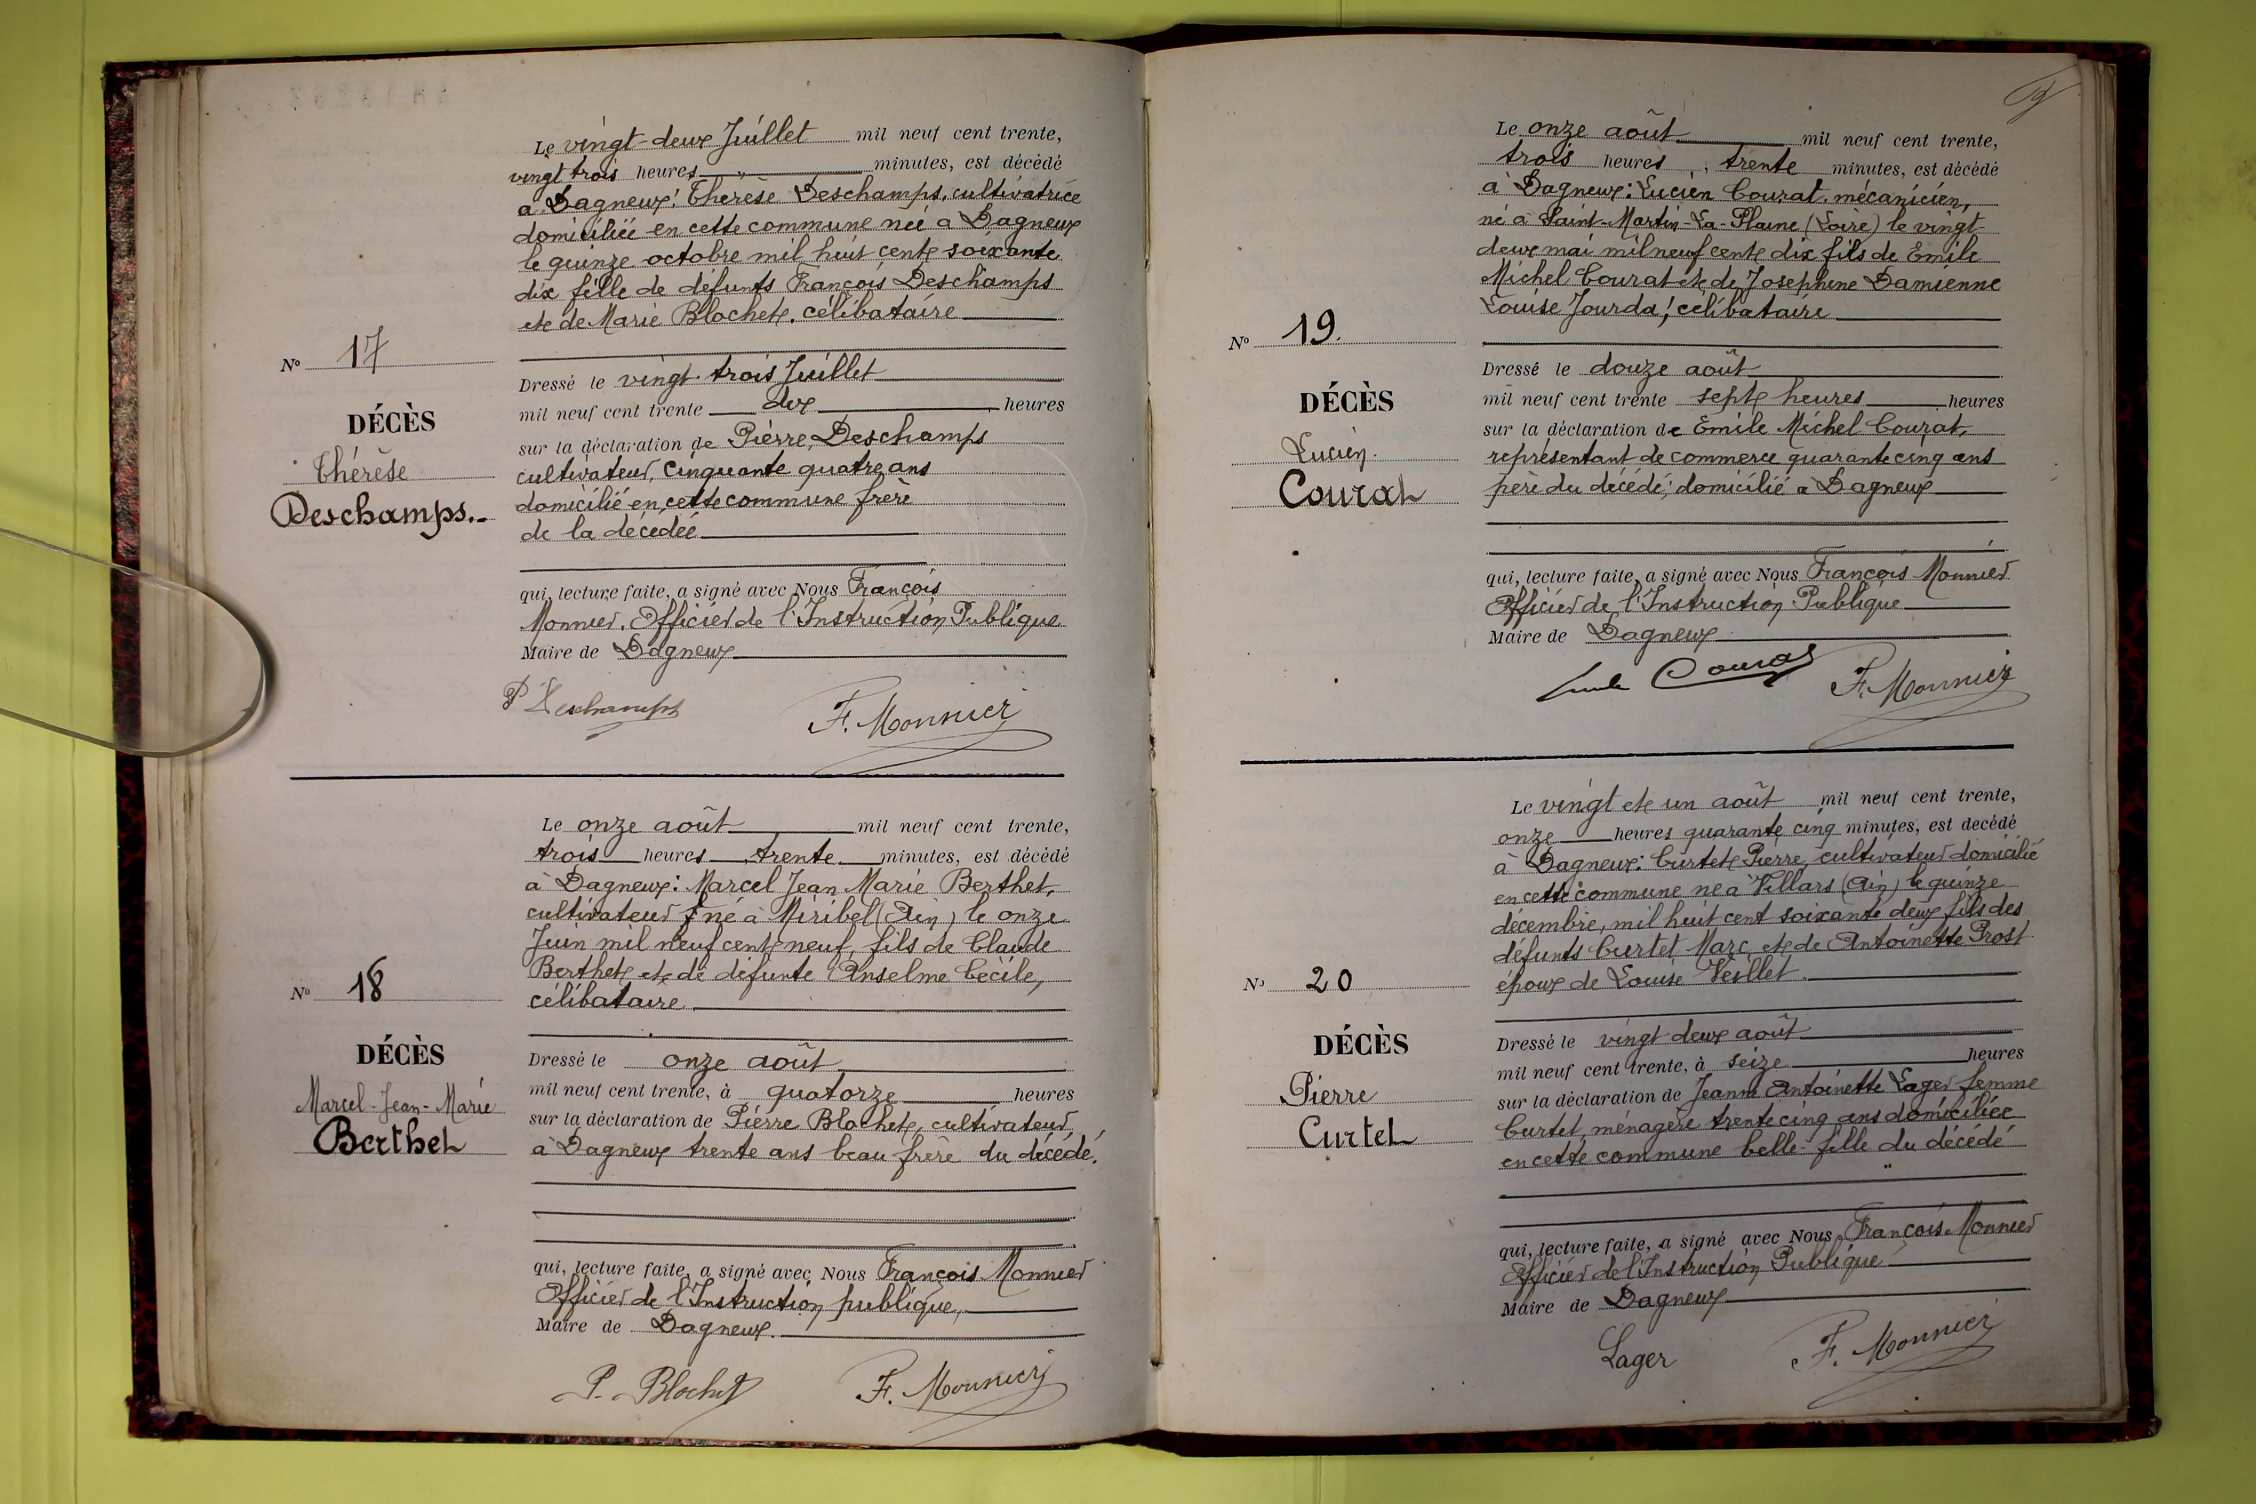 Le vingt-deux Juillet mil neuf cent trente,
vingt trois heures " minutes, est décédé
a Dagneux: Thérèse Deschamps, cultivatrice
domiciliée en cette commune née a Dagneux
le quinze octobre mil huit cent soixante
dix fille de défunts François Deschamps
et de Marie Blochet, célibataire
Nº 17
DÉCÈS
Thérèse
Deschamps.-
Dressé le vingt-trois Juillet
mil neuf cent trente dix heures
sur la déclaration de Pierre Deschamps
cultivateur, cinquante quatre ans
domicilié en cette commune frère
de la décédée
qui, lecture faite, a signé avec Nous François
Monnier, Officier de l'Instruction Publique
Maire de Dagneux
P Deschamps F. Monnier
Le onze août mil neuf cent trente,
trois heures, trente minutes, est décédé
à Dagneux: Marcel Jean Marie Berthet,
cultivateur né à Miribel (Ain) le onze
Juin mil neuf cent neuf, fils de Claude
Berthet et de défunte Anselme Cécile,
célibataire
Nº 18
DÉCÈS
Marcel-Jean-Marie
Berthet
Dressé le onze août
mil neuf cent trente, à quatorze heures
sur la déclaration de Pierre Blochet, cultivateur
à Dagneux trente ans beau frère du décédé.
qui, lecture faite, a signé avec Nous François Monnier
Officier de l'Instruction publique,
Maire de Dagneux.
P. Blochet F. Monnier
Le onze août mil neuf cent trente,
trois heures, trente minutes, est décédé
à Dagneux: Lucien Courat, mécanicien,
né à Saint-Martin-La-Plaine (Loire) le vingt-
deux mai mil neuf cent dix fils de Emile
Michel Courat et de Josephine Damienne
Louise Jourda, célibataire
Nº 19.
DÉCÈS
Lucien
Courat
Dressé le douze août
mil neuf cent trente sept heures heures
sur la déclaration de Emile Michel Courat,
représentant de commerce quarante cinq ans
père du décédé, domicilié a Dagneux
qui, lecture faite, a signé avec Nous François Monnier
Officier de l'Instruction Publique
Maire de Dagneux
Emile Courat F. Monnier
Le vingt et un août mil neuf cent trente,
onze heures quarante cinq minutes, est decédé
à Dagneux: Curtet Pierre, cultivateur domicilié
en cette commune né à Villars (Ain) le quinze
décembre, mil huit cent soixante deux fils des
défunts Curtet Marc et de Antoinette Prost
époux de Louise Veillet.
Nº 20
DÉCÈS
Pierre
Curtet
Dressé le vingt deux août
mil neuf cent trente, à seize heures
sur la déclaration de Jeanne Antoinette Lager femme
Curtet, ménagère trente cinq ans domiciliée
en cette commune belle-fille du décédé
qui, lecture faite, a signé avec Nous François Monnier
Officier de l'Instruction Publique
Maire de Dagneux
Lager F. Monnier